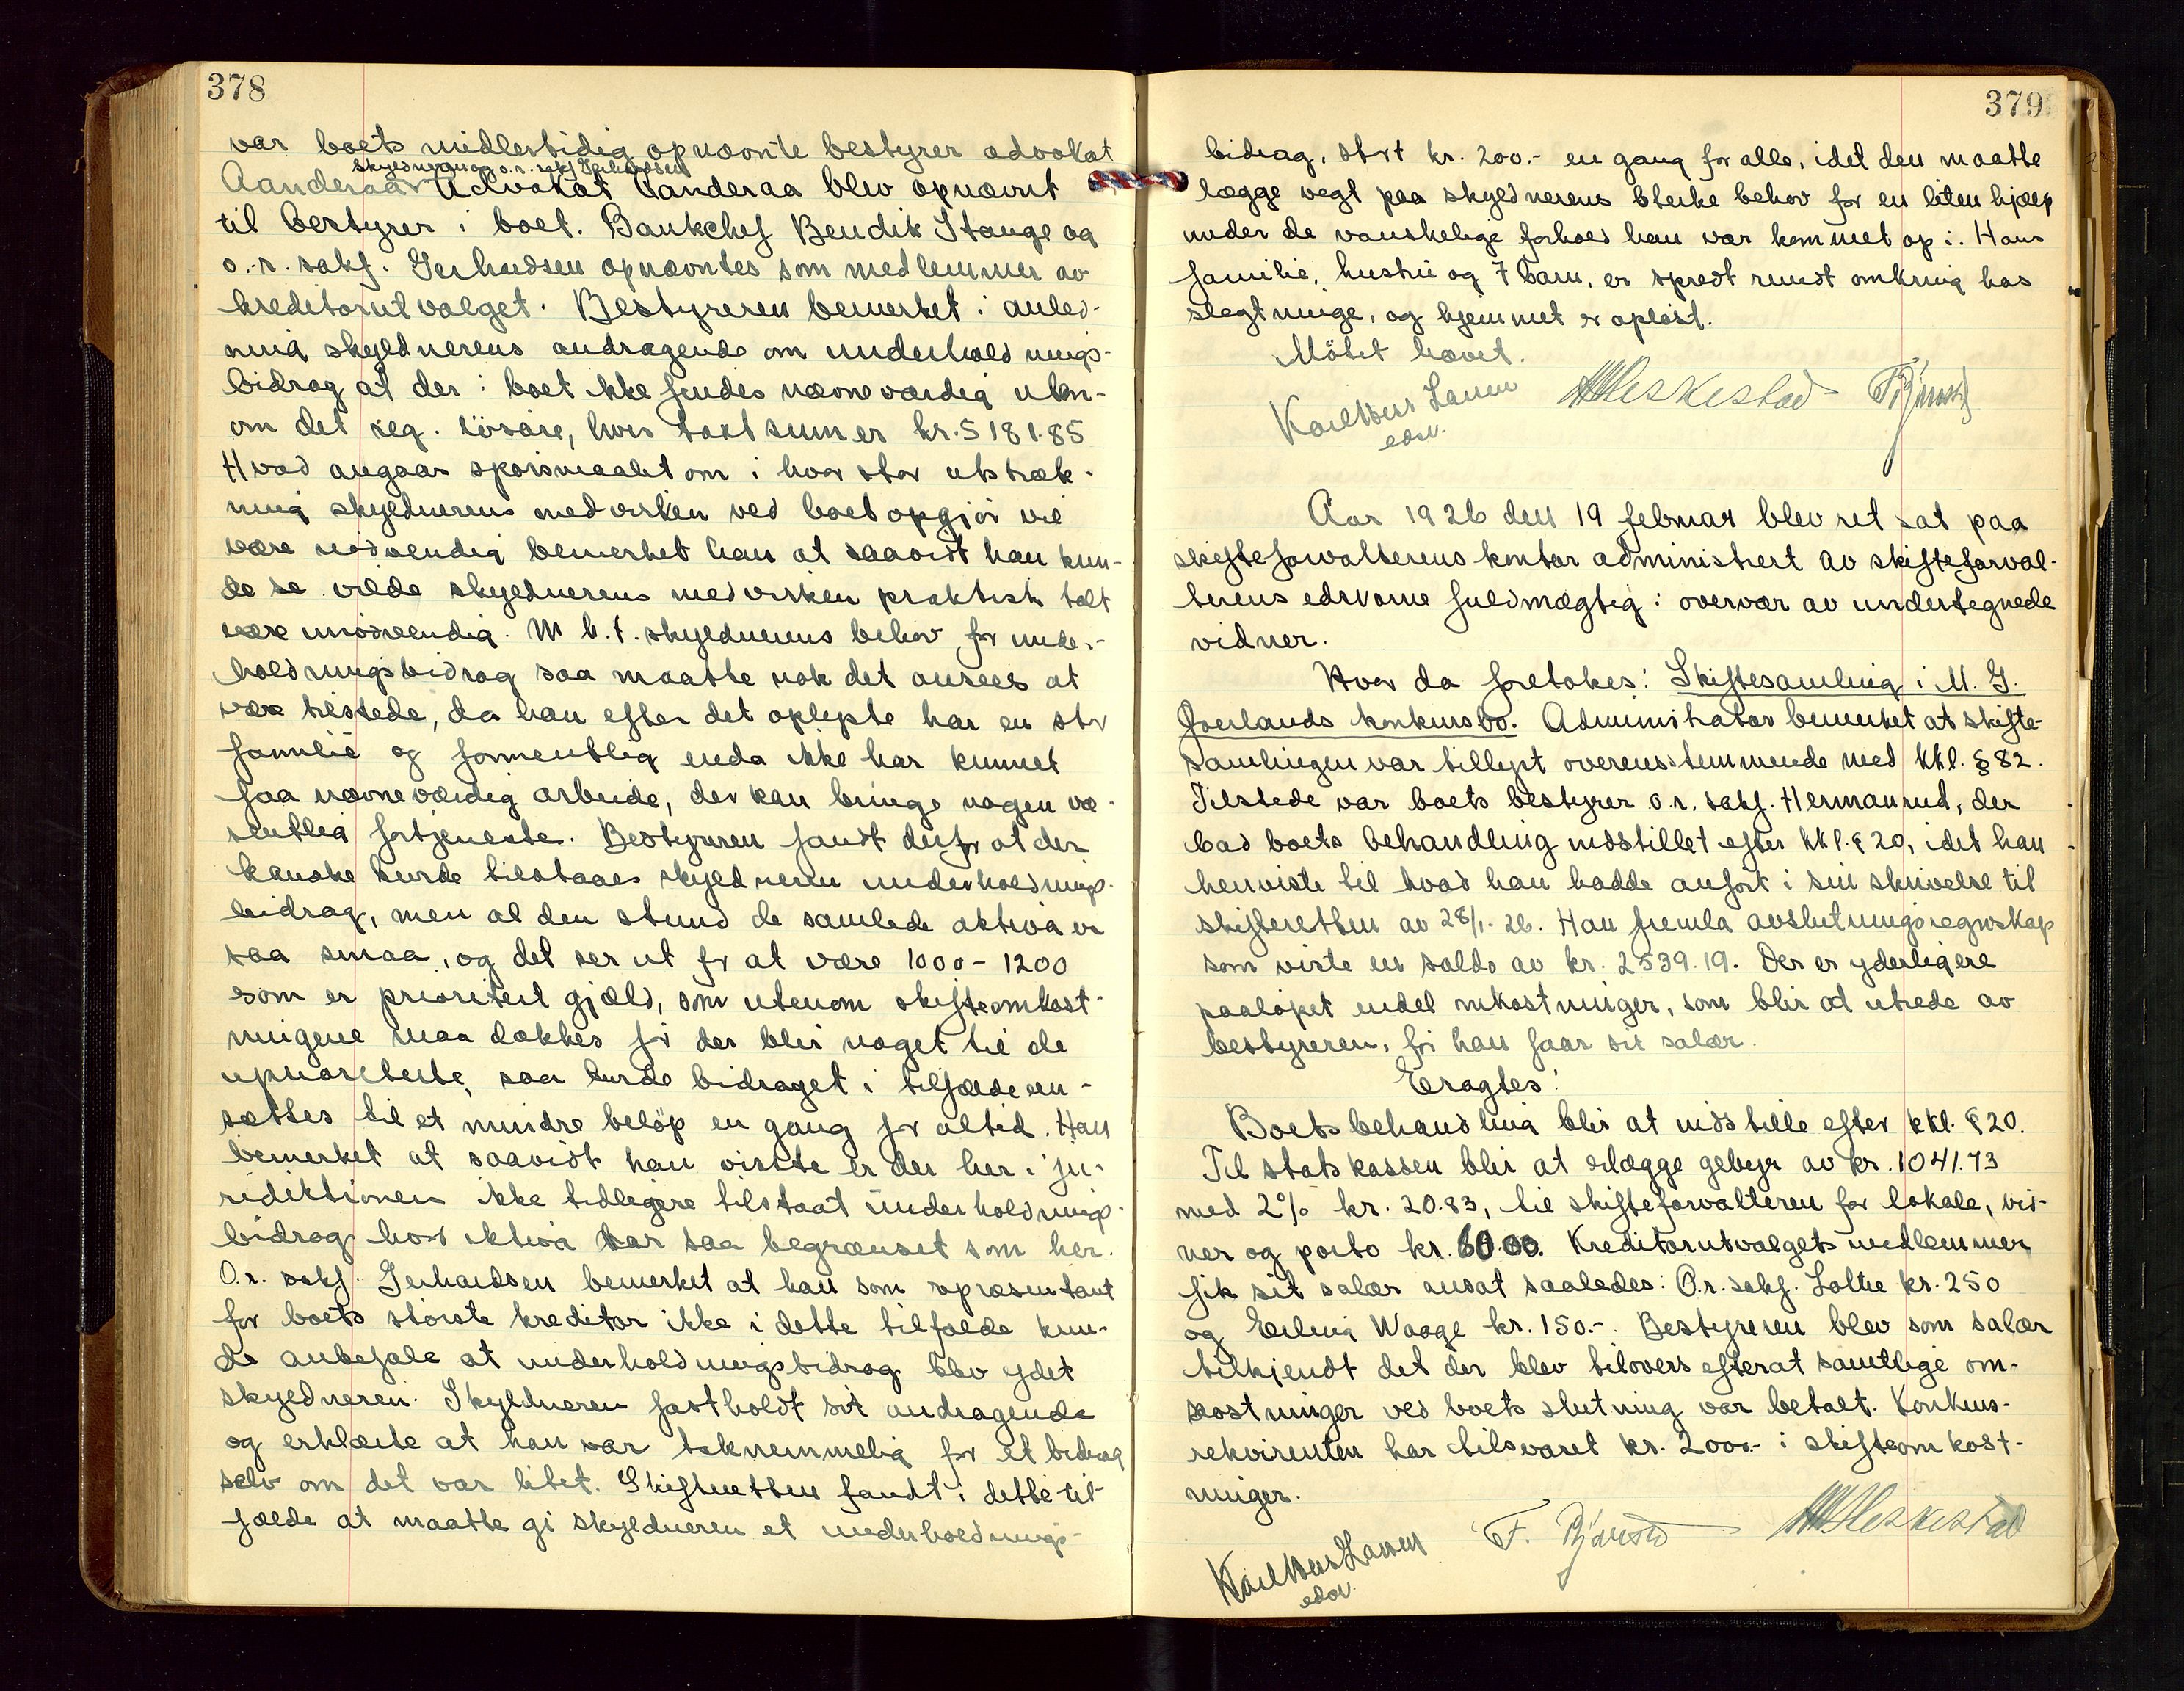 378
var boets midlertidig opnævnte bestyrer advokat
skyldneren og o.r. sakf. Gerhardsen
Aanderaa. Advokat Aanderaa blev opnævnt
til bestyrer i boet. Bankchef Bendik Stange og
o.r. sakf. Gerhardsen opnævntes som medlemmer av
kreditorutvalget. Bestyreren bemerket i anled-
ning skyldnerens andragende om underholdnings-
bidrag at der i boet ikke findes nævneværdig uten-
om det reg. lösöre, hvis takstsum er kr. 5181.85
Hvad angaar spörsmaalet om i hvor stor utstræk-
ning skyldnerens medvirken ved boet opgjör vil
være nödvendig bemerket han at saavidt han kun-
de se vilde skyldnerens medvirken praktisk talt
være unödvendig. M.h.t. skyldnerens behov for under-
holdningsbidrag saa maatte nok det ansees at
være tilstede, da han efter det oplyste har en stor
familie og formentlig enda ikke har kunnet
faa nævneværdig arbeide, der kan bringe nogen væ-
sentlig fortjeneste. Bestyreren fandt derfor at der
kanske burde tilstaaes skyldneren underholdnings-
bidrag, men al den stund de samlede aktiva er
saa smaa, og det ser ut for at være 1000 - 1200
som er prioritert gjæld, som utenom skifteomkost-
ningene maa dækkes för der blir noget til de
uprioriterte, saa burde bidraget i tilfælde an-
sættes til et mindre belöp en gang for altid. Han
bemerket at saavidt han visste er der her i ju-
ridiktionen ikke tidligere tilstaat underholdnings-
bidrag hvor aktiva var saa begrænset som her.
O.r. sakf. Gerhardsen bemerket at han som repræsentant
for boets störste kreditor ikke i dette tilfælde kun-
de anbefale at underholdningsbidrag blev ydet
skyldneren. Skyldneren fastholdt sit andragende
og erklærte at han var taknemmelig for et bidrag
selv om det var litet. Skifteretten fandt i dette til-
fælde at maatte gi skyldneren et underholdnings-
379
bidrag, stort kr. 200.- en gang for alle, idet den maatte
lægge vegt paa skyldnerens sterke behov for en liten hjælp
under de vanskelige forhold han var kommet op i. Hans
familie, hustru og 7 barn, er spredt rundt omkring hos
slegtninge, og hjemmet er oplöst.
Mötet hævet.
Karl Larsen
edsv.
Heskestad
Aar 1926 den 19 februar blev ret sat paa
skifteforvalterens kontor administrert av skifteforval-
terens edsvorne fuldmægtig i overvær av undertegnede
vidner.
Hvor da foretokes: Skiftesamling i M. G.
Joerlands konkursbo. Administrator bemerket at skifte-
samlingen var tillyst overensstemmende med kkl. § 82.
Tilstede var boets bestyrer o.r. sakf. Hermanrud, der
bad boets behandling indstillet efter kkl. § 20, idet han
henviste til hvad han hadde anfört i sin skrivelse til
skifteretten av 28/1-26. Han fremla avslutningsregnskap
som viste en saldo av kr. 2539.19. Der er yderligere
paalöpet endel omkostninger, som blir at utrede av
bestyreren, för han faar sit salær.
Eragtes:
Boets behandling blir at indstille efter kkl. § 20.
Til statskassen blir at erlægge gebyr av kr. 1041.73
med 2% kr. 20.83, til skifteforvalteren for lokale, vid-
ner og porto kr. 60.00. Kreditorutvalgets medlemmer
fik sit salær ansat saaledes: O.r. sakf. Loltie kr. 250
og Erling Waage kr. 150.-. Bestyreren blev som salær
tilkjendt det der blev tilovers efterat samtlige om-
kostninger ved boets slutning var betalt. Konkurs-
rekvirenten har tilsvaret kr. 200.- i skifteomkost-
ninger.
Karl Larsen
edsv.
F. Heskestad